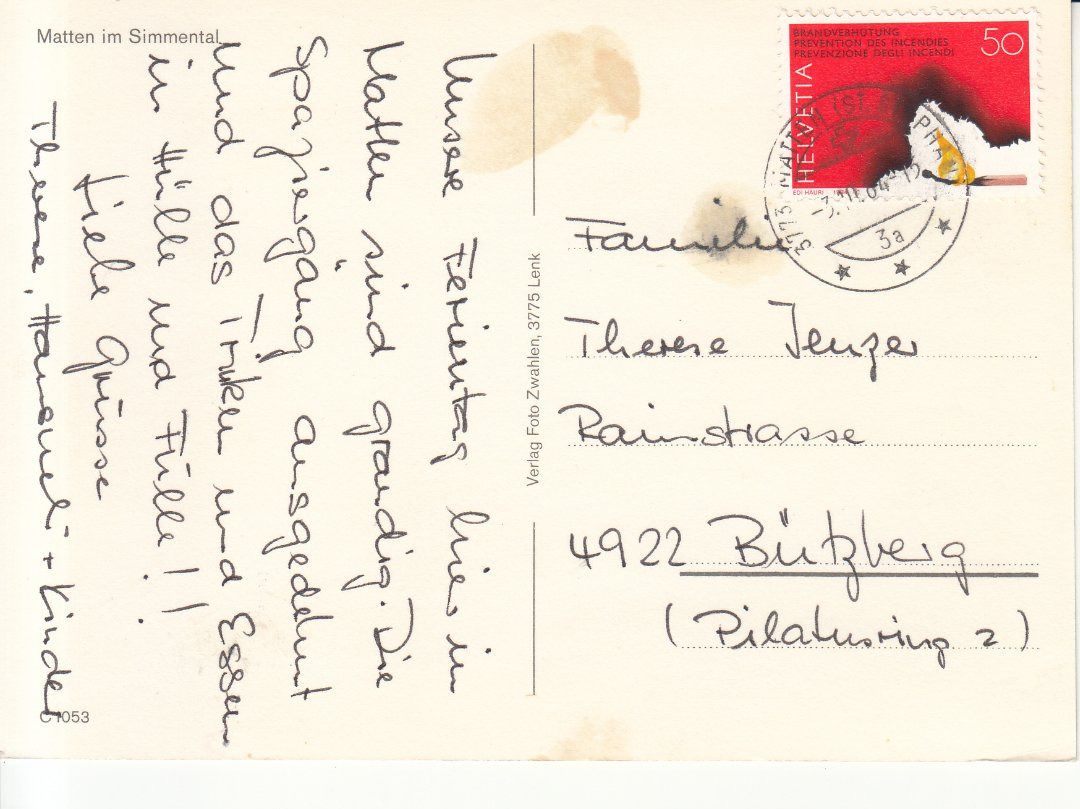 Matten im Simmental
Unsere Ferientag hier in
Matten sind grandig. Die
Spaziergäng ausgedehnt
und das Trinken und Essen
in Hülle und Fülle!!
Liebe Grüsse
Therese, Hansueli + Kinder
C 1053
Verlag Foto Zwahlen, 3775 Lenk
BRANDVERHÜTUNG
PREVENTION DES INCENDIES
PREVENZIONE DEGLI INCENDI
50
HELVETIA
EDI HAURI
3773 MATTEN (ST. STEPHAN)
3a
Familie
Therese Jenzer
Rainstrasse
4922 Bützberg
(Pilatusring 2)